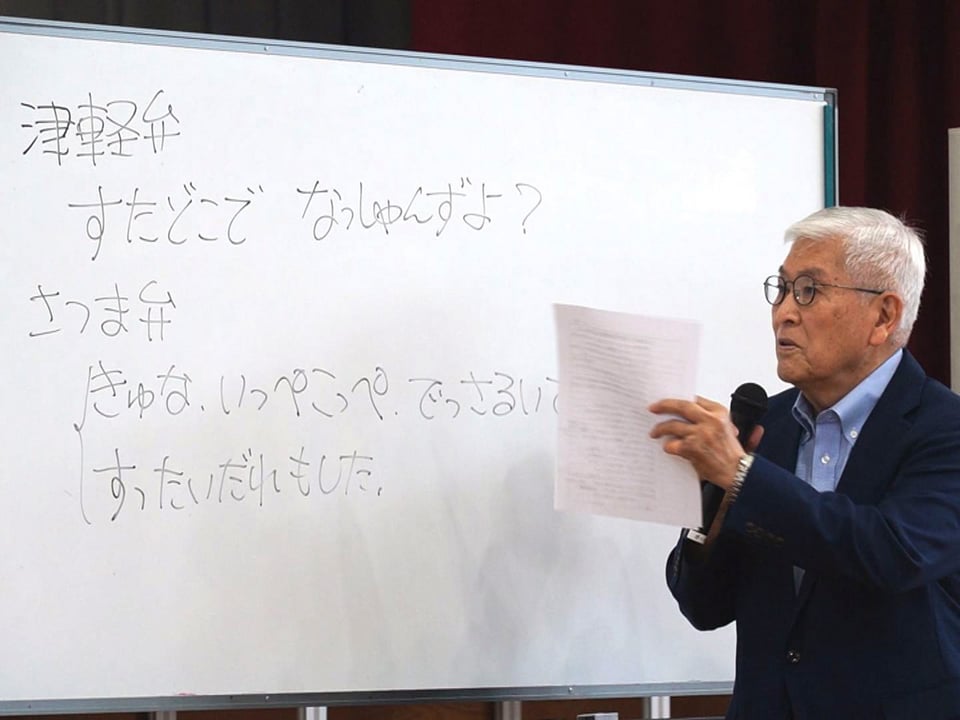 津軽弁
すたどこで なっしゅんずよ？
さつま弁
きゅな、いっぺこっぺ、でっさるいて
すったいだれもした。